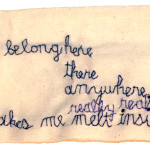 belong here
there
anywhere
really real
akes me melt insi